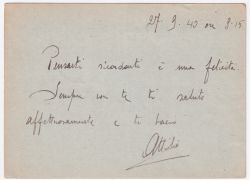 27. 9. 40 ore 8.15
Pensarti ricordarti è una felicità.
Sempre con te ti saluto
affettuosamente e ti bacio
Attilio